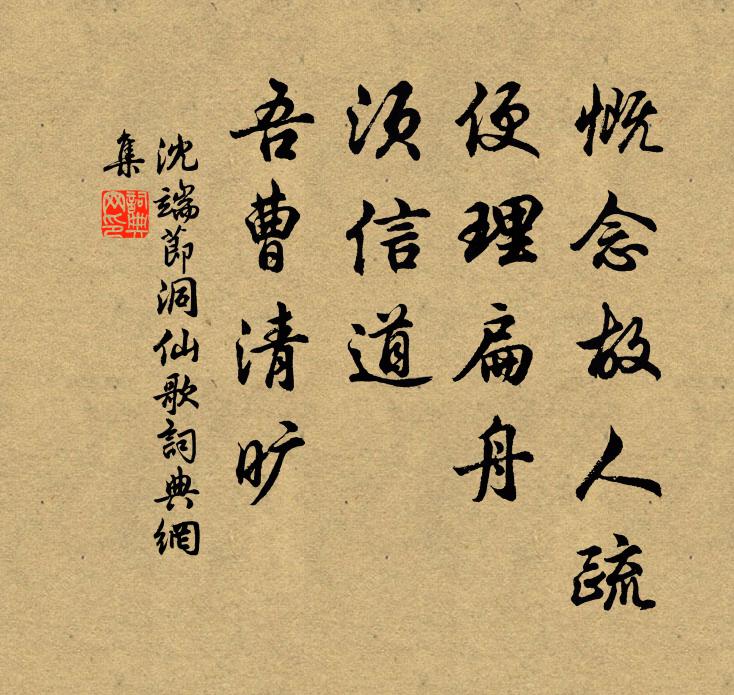 慨念故人疏
便理扁舟
须信道
吾曹清旷
沈端節洞仙歌詞典網
集
詞典網印